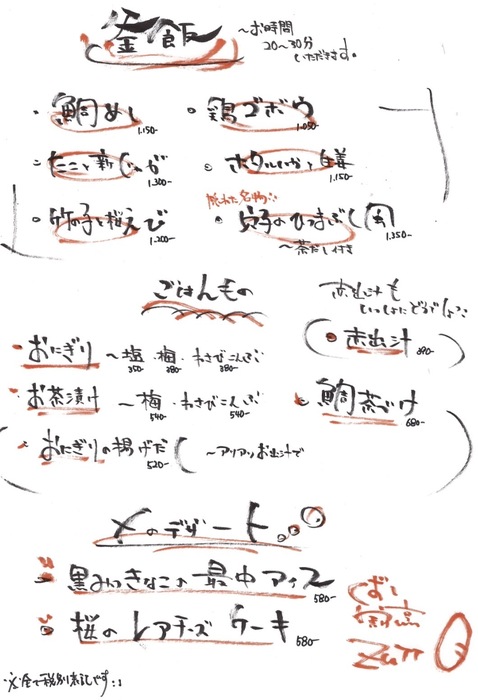 釜飯
~お時間
20~30分
いただきます。
・鯛めし 1.150-
・鶏ゴボウ 1.050-
・たこと新じゃが 1.300-
・ホタルいかと生姜 1.150-
・竹の子と桜えび 1.200-
隠れた名物!!
・穴子のひつまぶし風 1.350-
~茶だし付き
ごはんもの
赤出汁も
いっしょにどうでしょ?
・おにぎり ~塩・梅・わさびこんぶ
350- 380- 380-
・赤出汁 390-
・お茶漬け ~梅・わさびこんぶ
540- 540-
・鯛茶づけ 680-
・おにぎりの揚げだし ~アツアツお出汁で
520-
〆のデザート
黒みつきなこの最中アイス 580-
桜のレアチーズケーキ 580-
※全て税別表記です